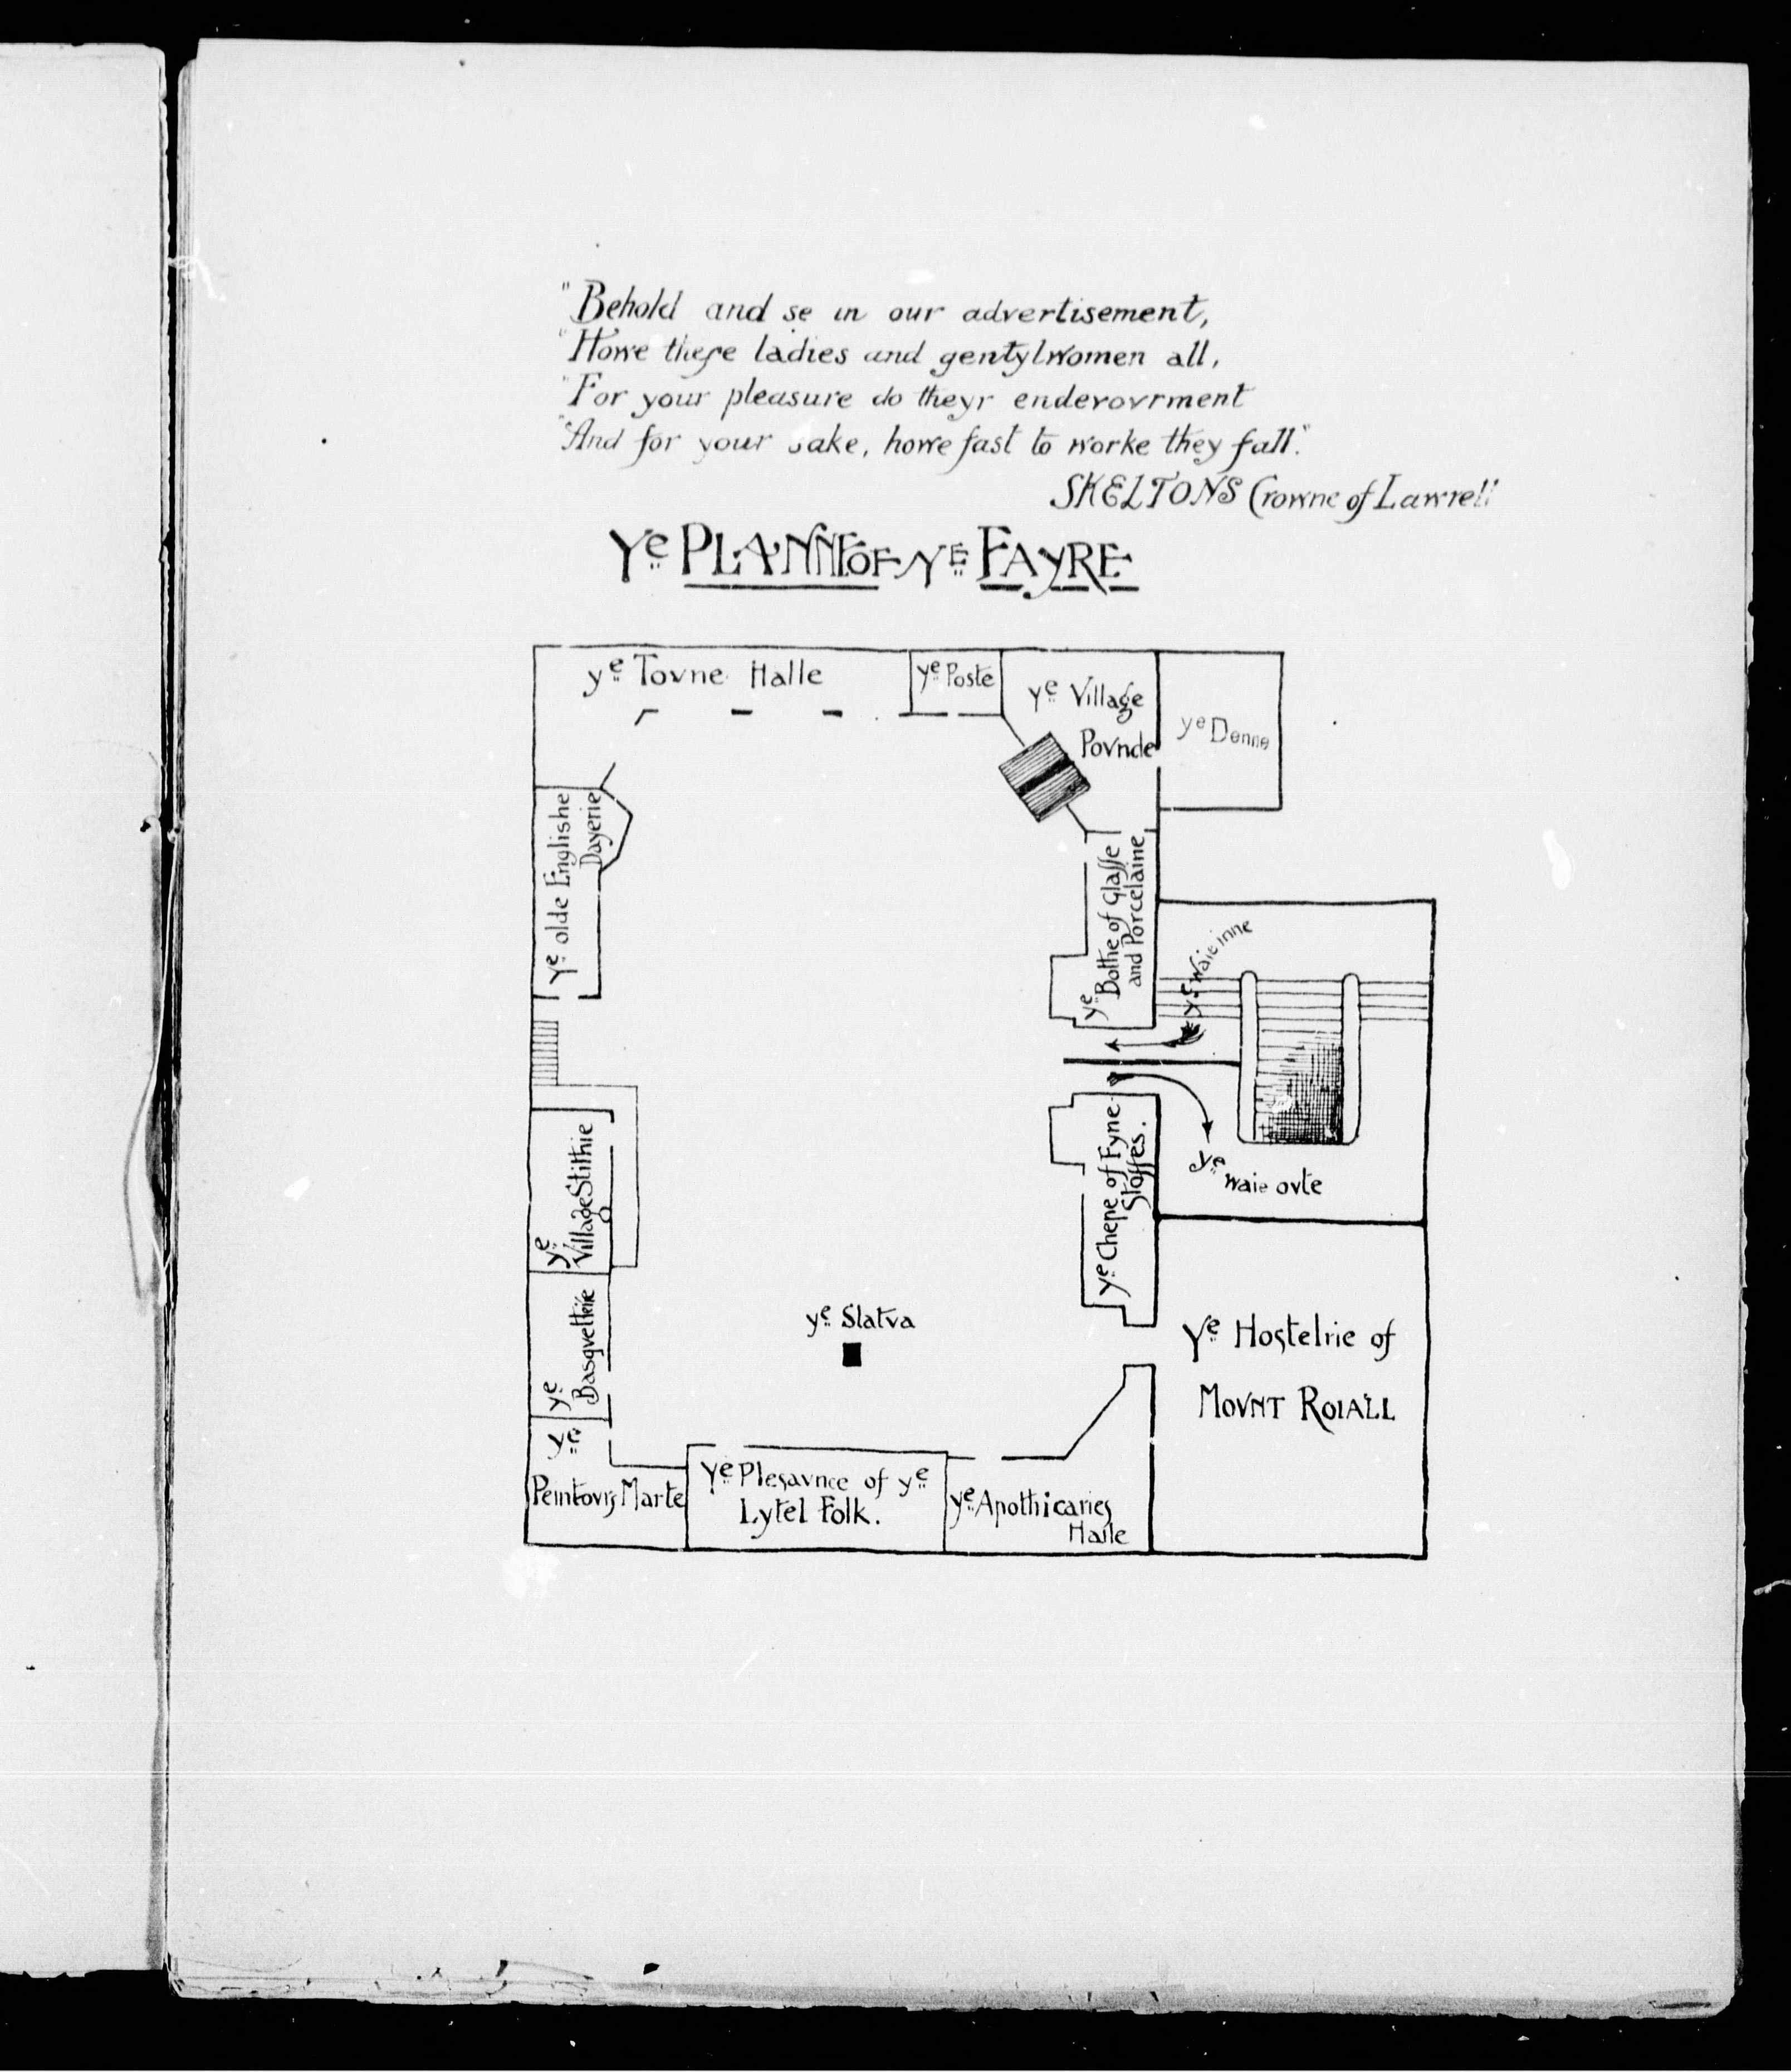 "Behold and se in our advertisement,
"Howe these ladies and gentylwomen all,
"For your pleasure do theyr endevovrment
"And for your sake, howe fast to worke they fall."
SKELTONS Crowne of Lawrell
Ye PLANNE OF YE FAYRE
ye Tovne Halle
ye Poste
ye Village
Povnde
ye Denne
Ye olde Englishe
Dayerie
ye Bothe of Glasse
and Porcelaine
ye Waie inne
ye Waie ovte
ye Village Stithie
ye Chepe of Fyne
Stoffes.
ye Basqvettrie
ye Statva
Ye Hostelrie of
MOVNT ROIALL
ye
Peintovrs Marte
Ye Plesavnce of ye
Lytel Folk.
ye Apothicaries
Halle